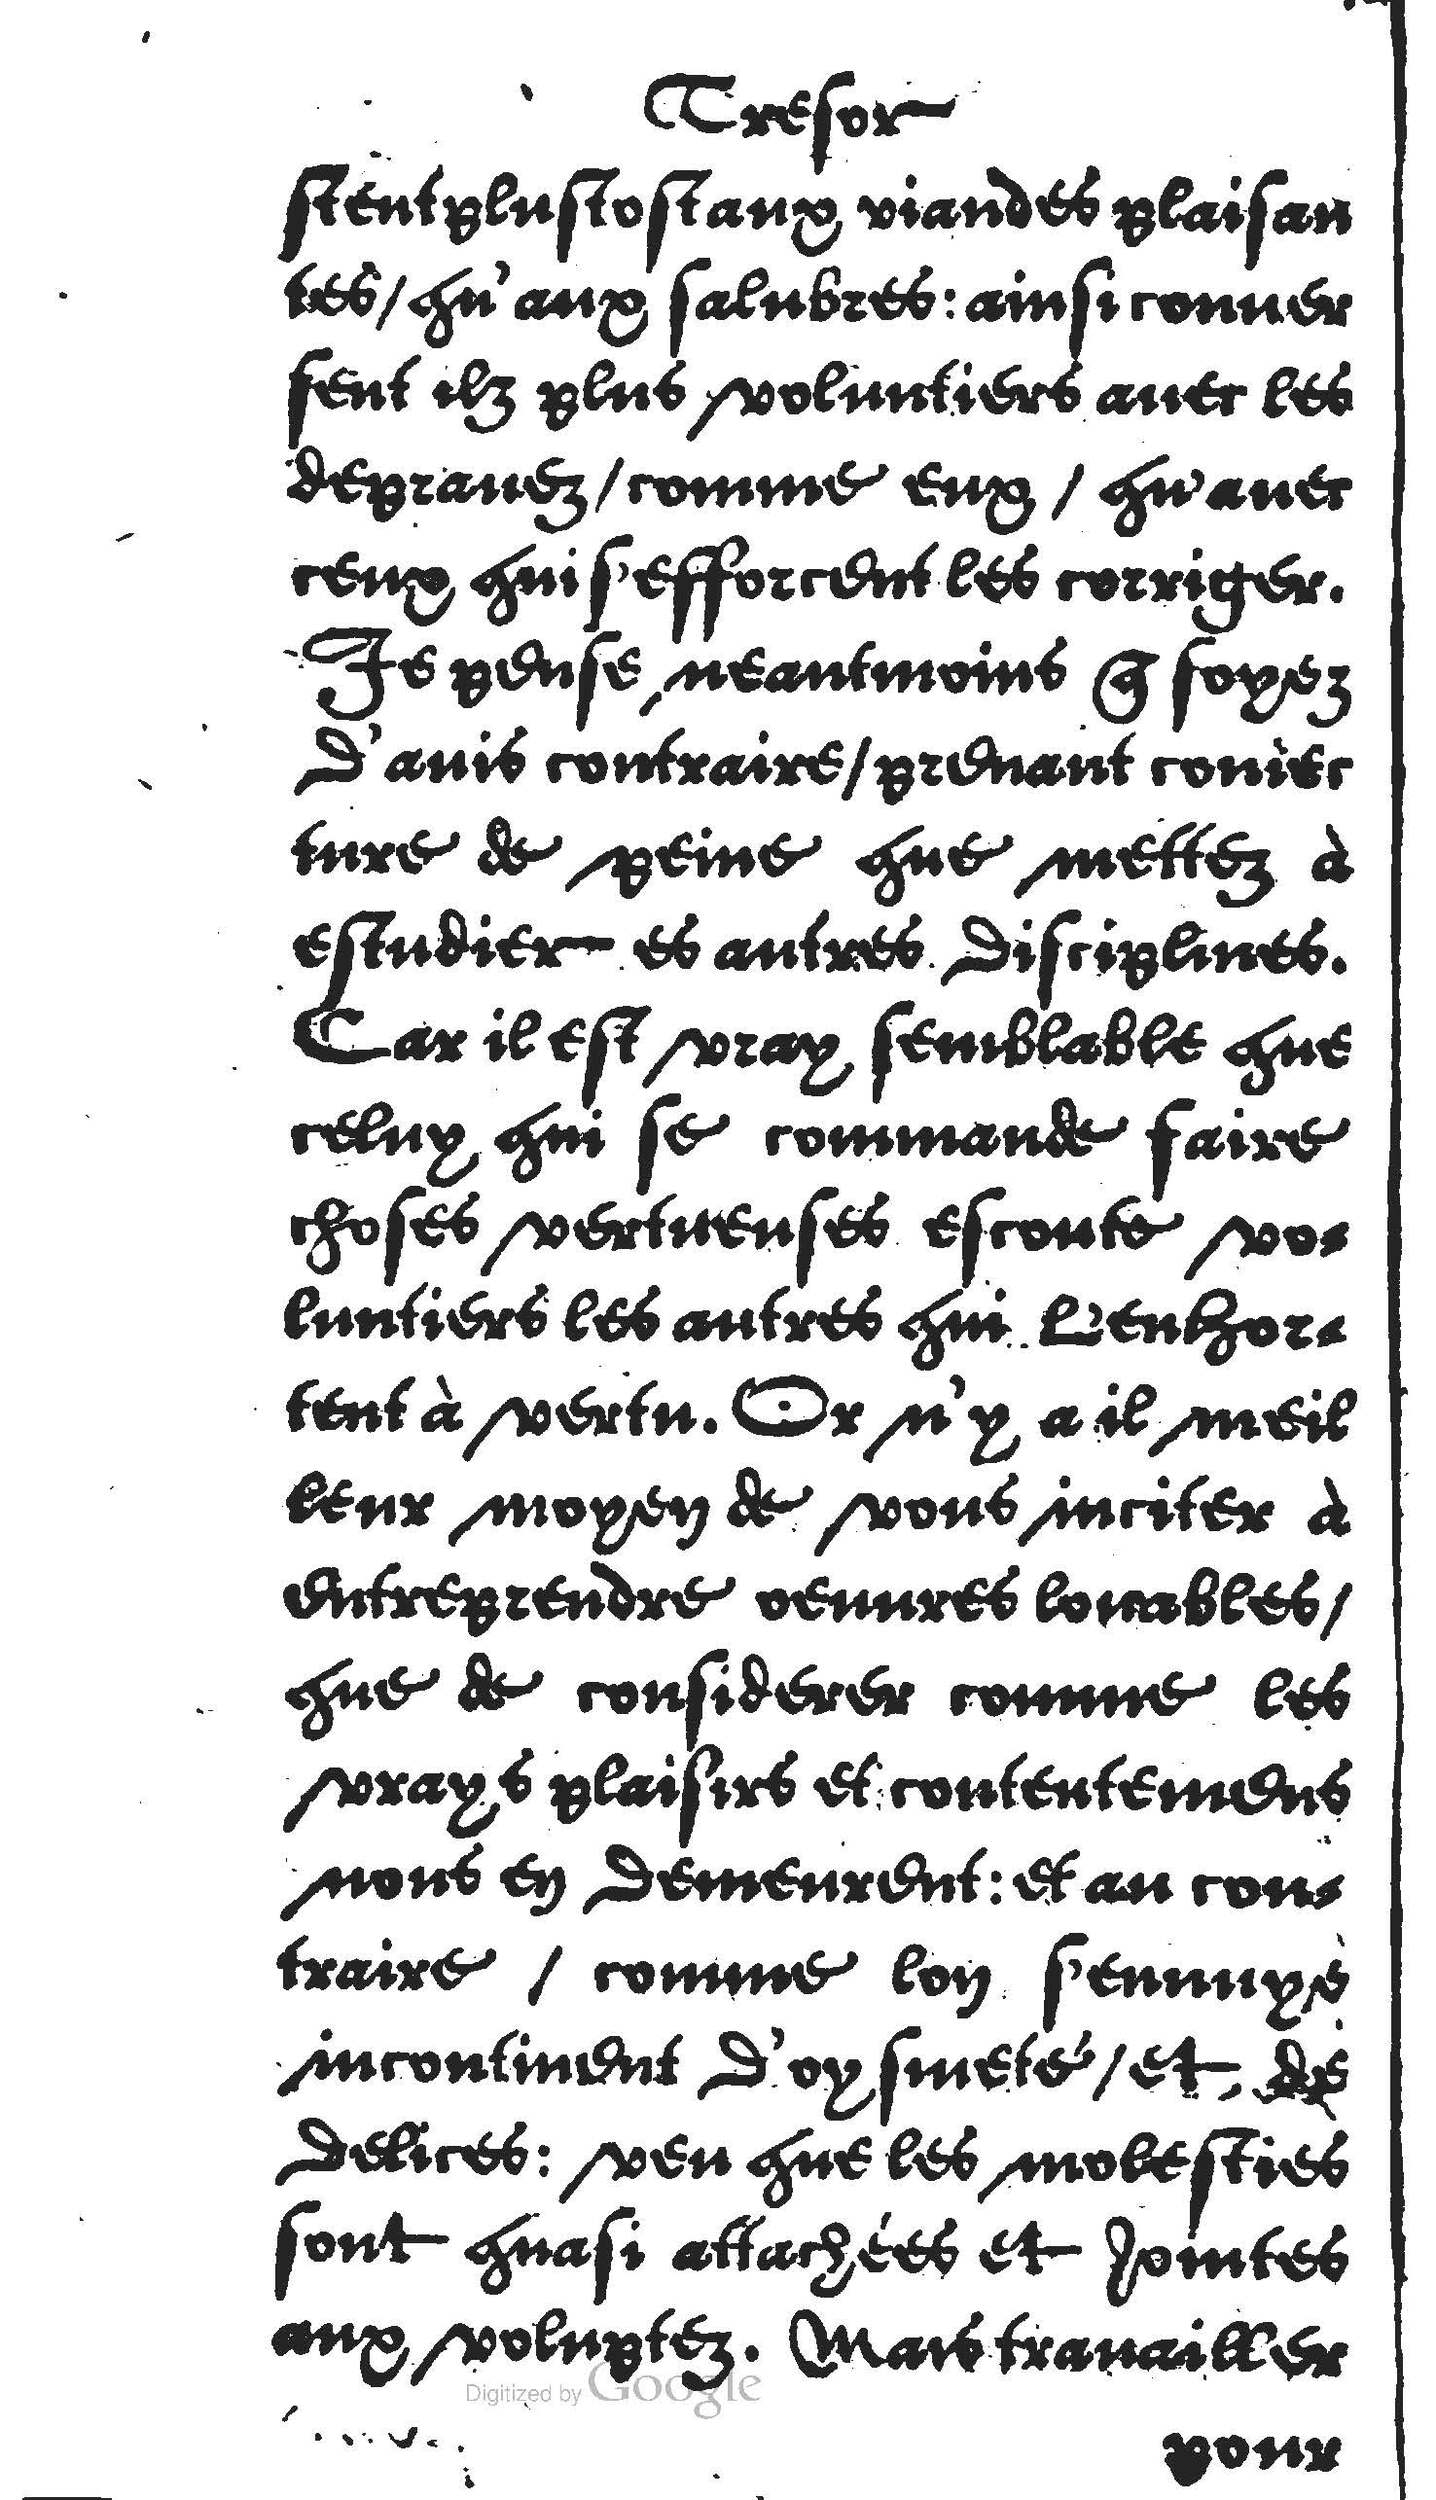 Tresor
stent plustost aux viandes plaisan
tes/ qu'aux salubres: ainsi conuer
sent ilz plus voluntiers auec les
deprauez/ comme eux/ qu'auec
ceux qui s'efforcent les corriger.
Je pense neantmoins q̃ soyez
d'auis contraire/ prenant coniec
ture de peine que mettez à
estudier es autres disciplines.
Car il est vray semblable que
celuy qui se commande faire
choses vertueuses escoute vo-
luntiers les autres qui l'enhor-
tent à vertu. Or n'y a il meil
leur moyen de vous inciter à
entreprendre oeuures louables/
que de considerer comme les
vrays plaisirs et contentemens
nous en demeurent: et au con-
traire / comme lon s'ennuye
incontinent d'oysiueté/ et de
delices: veu que les molesties
sont quasi attachées et jointes
aux voluptez. Mais trauailler
pour
Digitized by Google